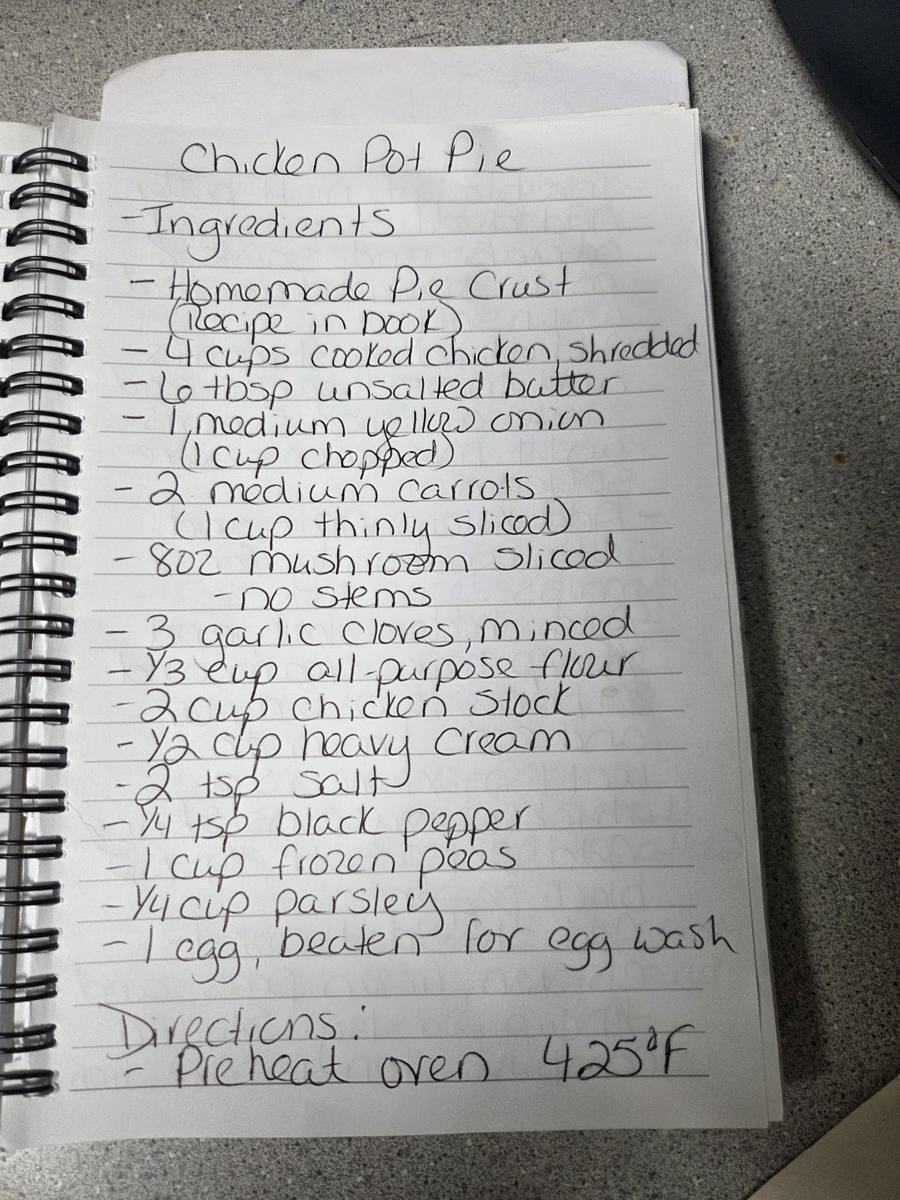 Chicken Pot Pie
- Ingredients
- Homemade Pie Crust
(Recipe in book)
- 4 cups cooked chicken, shredded
- 6 tbsp unsalted butter
- 1 medium yellow onion
(1 cup chopped)
- 2 medium carrots
(1 cup thinly sliced)
- 8oz mushroom sliced
- no stems
- 3 garlic cloves, minced
- 1/3 cup all-purpose flour
- 2 cup chicken stock
- 1/2 cup heavy cream
- 2 tsp salt
- 1/4 tsp black pepper
- 1 cup frozen peas
- 1/4 cup parsley
- 1 egg, beaten for egg wash
Directions:
- Preheat oven 425°F